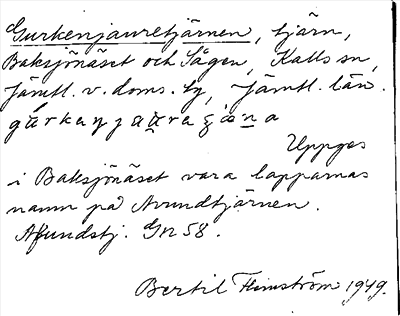 Gurkenjauretjärnen, tjärn,
Baksjönäset och Sågen, Kalls sn,
Jämtl. v. doms. tg, Jämtl. län.
Uppges
i Baksjönäset vara lapparnas
namn på Avundtjärnen.
Afundstj. Gn 58.
Bertil Flemström 1949.